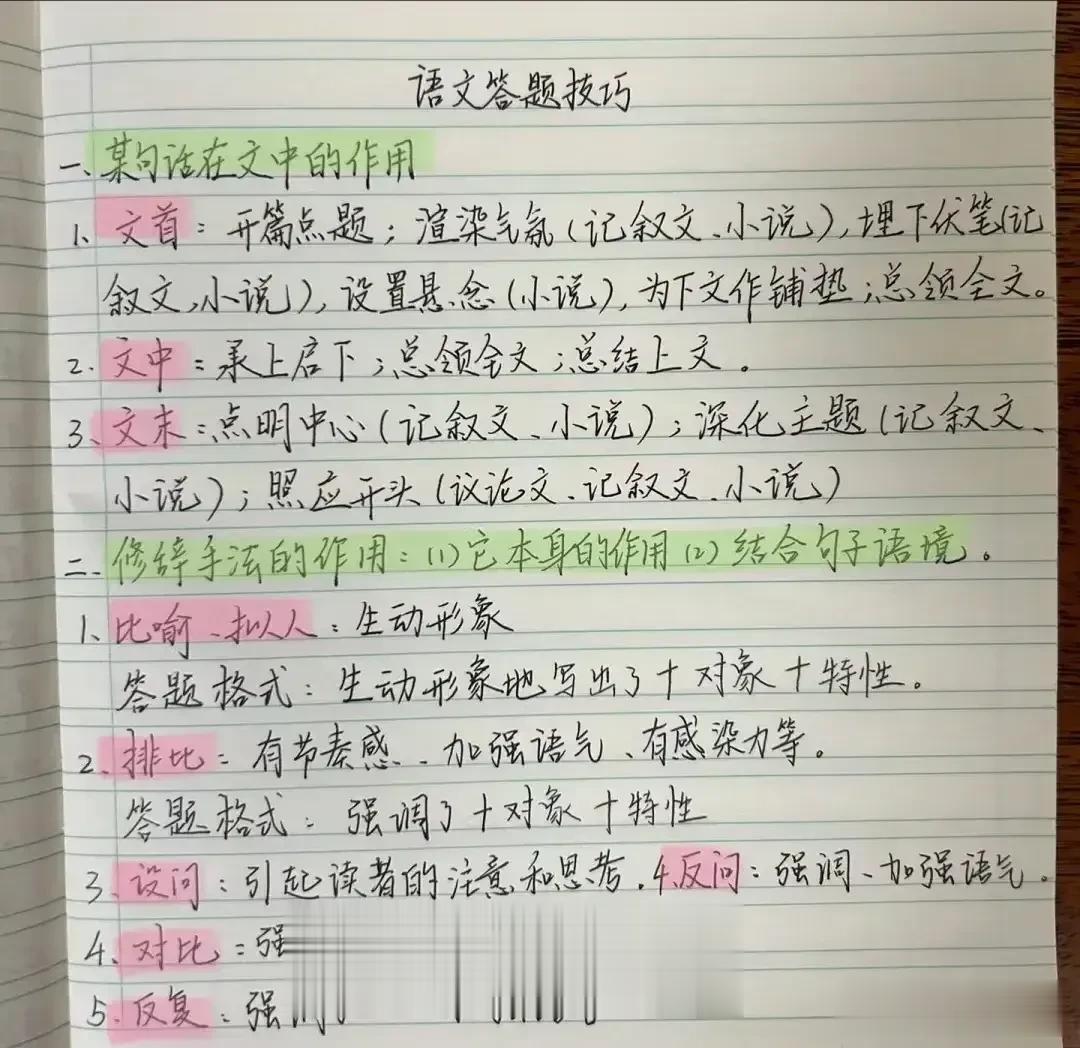 语文答题技巧
一、某句话在文中的作用
1、文首：开篇点题；渲染气氛（记叙文、小说），埋下伏笔（记
叙文，小说），设置悬念（小说），为下文作铺垫；总领全文。
2、文中：承上启下；总领全文；总结上文。
3、文末：点明中心（记叙文、小说）；深化主题（记叙文、
小说）；照应开头（议论文、记叙文、小说）
二、修辞手法的作用：(1)它本身的作用(2)结合句子语境。
1、比喻、拟人：生动形象
答题格式：生动形象地写出了+对象+特性。
2、排比：有节奏感、加强语气、有感染力等。
答题格式：强调了+对象+特性
3、设问：引起读者的注意和思考. 4.反问：强调、加强语气.
4、对比：强
5、反复：强